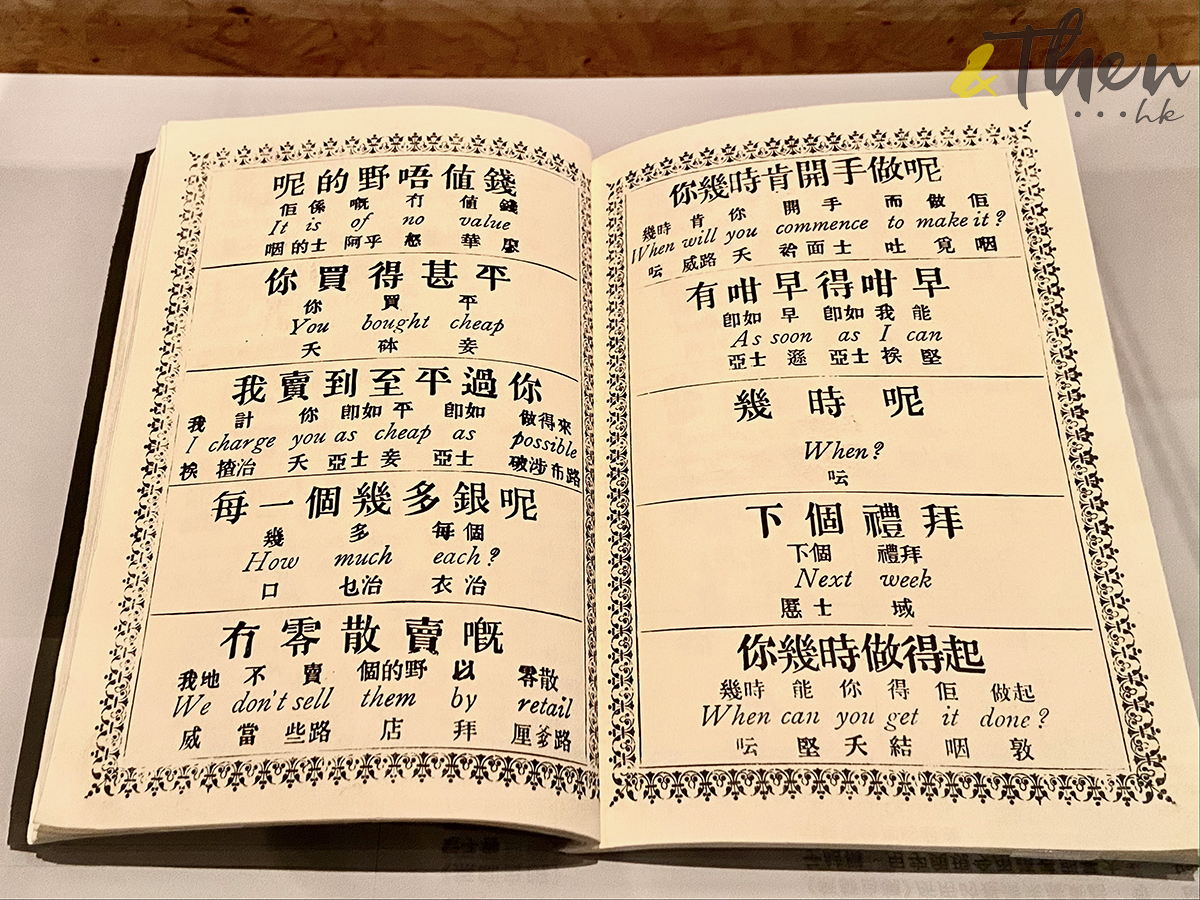 &Then
...hk
呢的野唔值錢
佢係嘅冇值錢
It is of no value
咽的士 阿乎 怒 華廖
你買得甚平
你 買 平
You bought cheap
天 砵 妾
我賣到至平過你
我 計 你 即如 平 即如 做得來
I charge you as cheap as possible
挨 揸治 天 亞士 妾 亞士 破涉布路
每一個幾多銀呢
幾 多 每個
How much each?
口 乜治 衣治
冇零散賣嘅
我地 不 賣 個的野 以 零散
We don't sell them by retail
威 當 些路 店 拜 厘爹路
你幾時肯開手做呢
幾時 肯 你 開手 而 做 佢
When will you commence to make it?
呍 威路 天 衿面士 吐 覓 咽
有咁早得咁早
即如 早 即如 我 能
As soon as I can
亞士 遜 亞士 挨 堅
幾時呢
When?
呍
下個禮拜
下個 禮拜
Next week
士 域
你幾時做得起
幾時 能 你 得 佢 做起
When can you get it done?
呍 堅 天 結 咽 敦